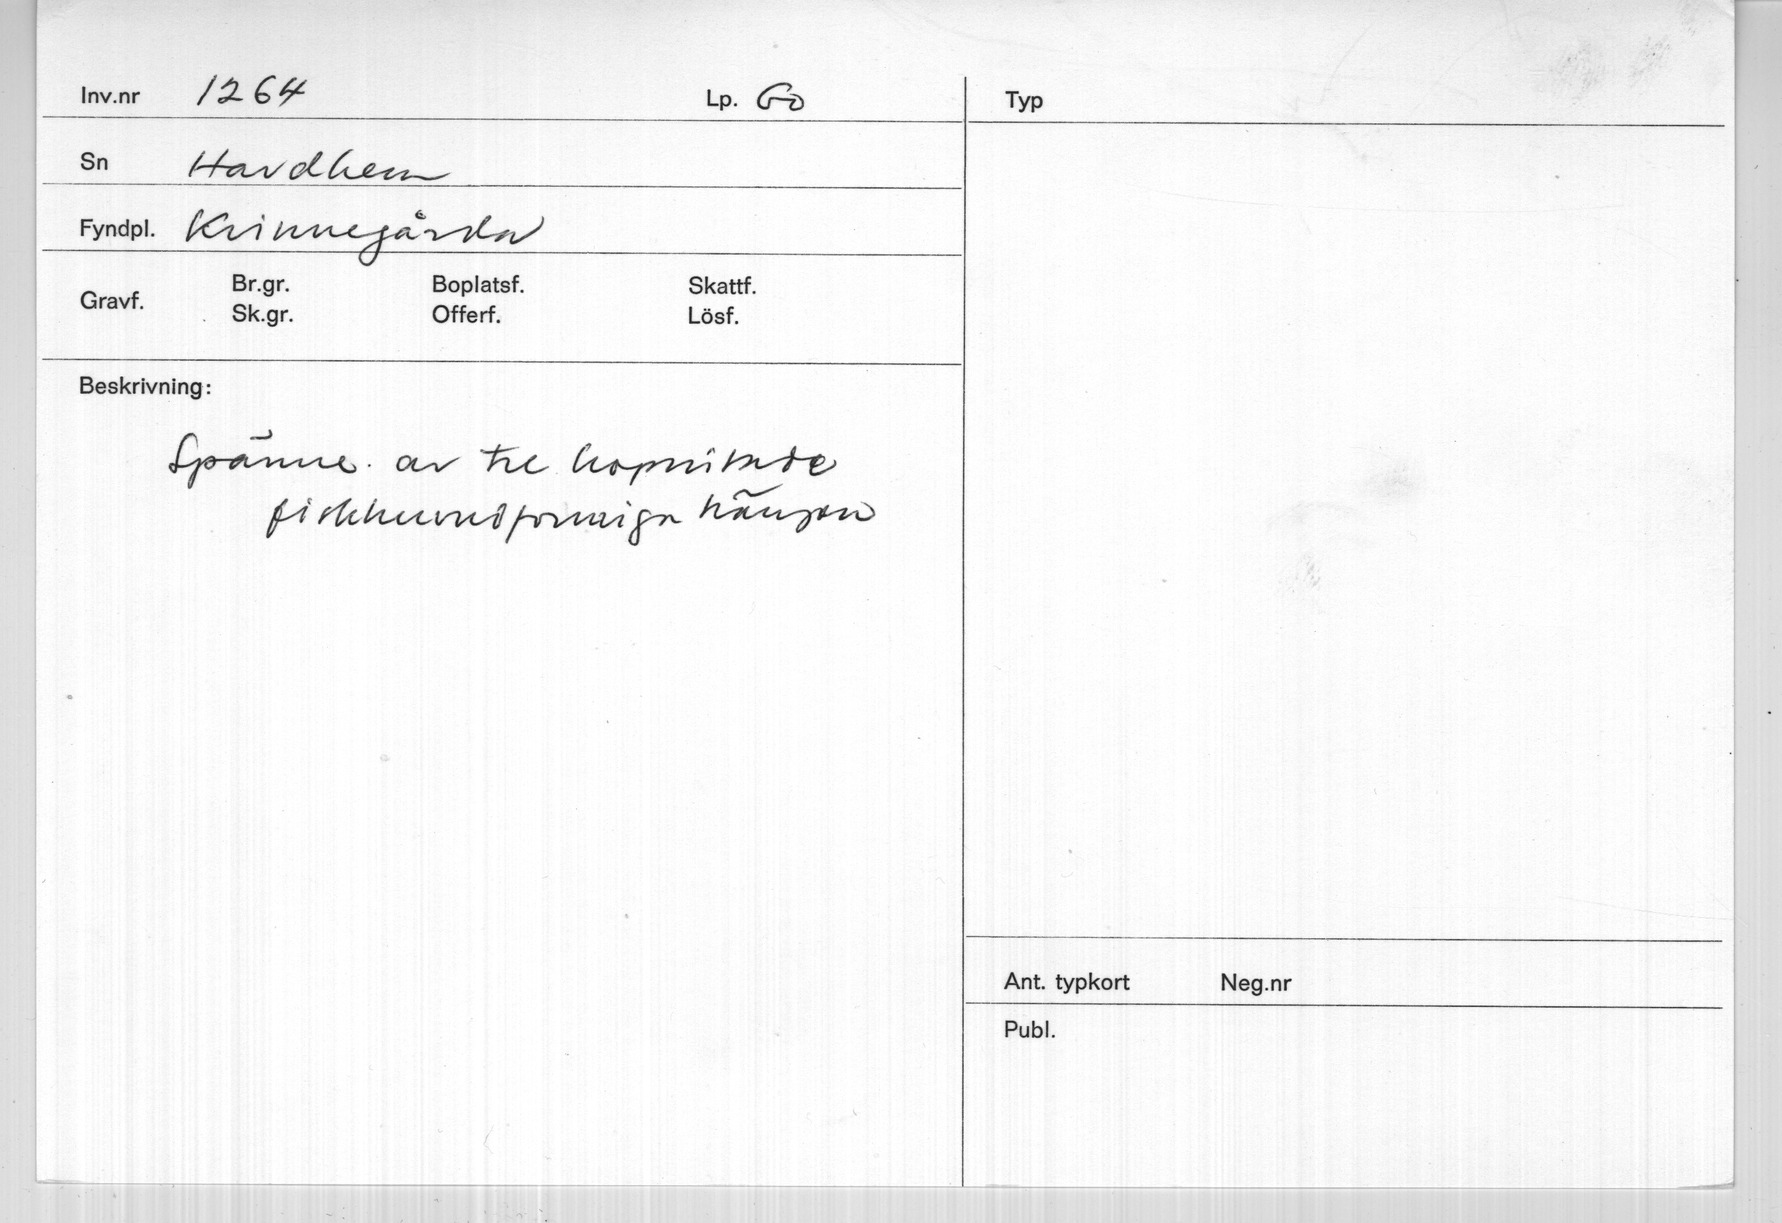 Inv.nr 1264 Lp. Go
Sn Havdhem
Fyndpl. Kvinnegårda
Gravf. Br.gr. Boplatsf. Skattf.
Sk.gr. Offerf. Lösf.
Beskrivning:
Spänne av tre hopnitade
fiskhuvudformiga hängen
Typ
Ant. typkort Neg.nr
Publ.